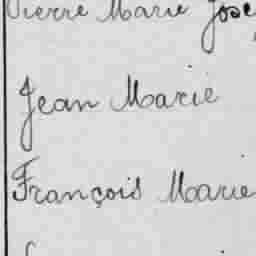 Pierre Marie Jose
Jean Marie
François Marie